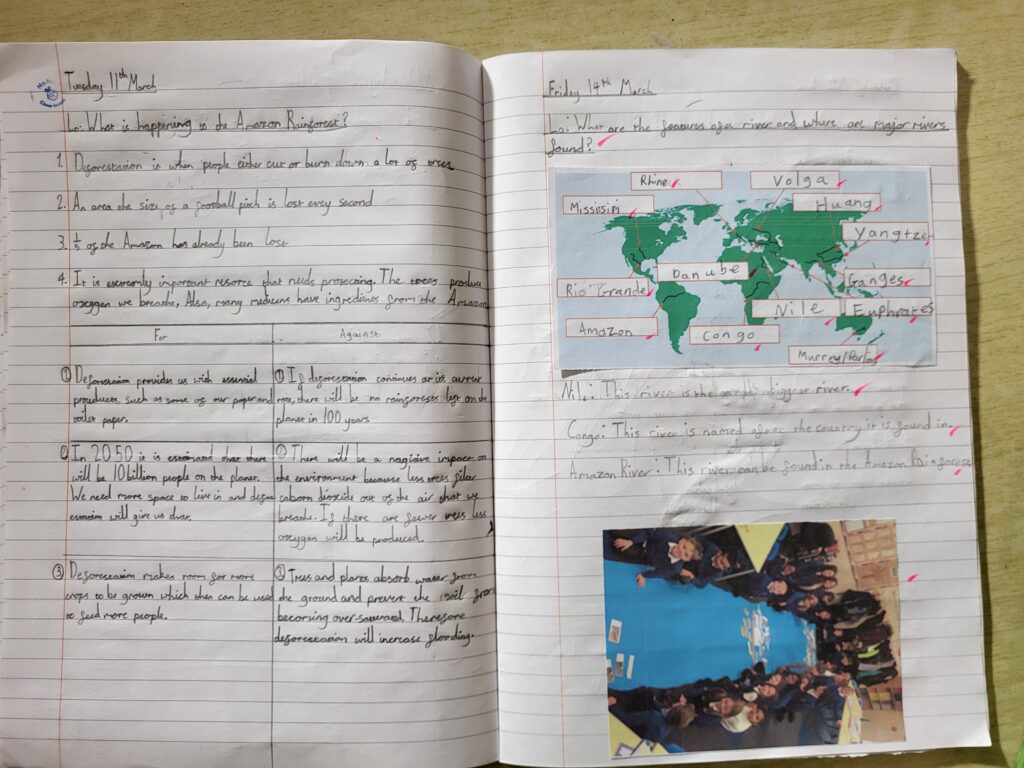 Tuesday 11th March
Lo: What is happening to the Amazon Rainforest?
1. Deforestation is when people either cut or burn down a lot of trees
2. An area the size of a football pitch is lost every second
3. 1/5 of the Amazon has already been lost
4. It is important resorce that needs protecting. The trees produce
oxygen we breathe, Also, many medicens have ingredients from the Amazon
For
Against
① Deforestation provides us with essential
products, such as some of our paper and
toilet paper.
① If deforestation continues at its current
rate, there will be no rainforests left on the
planet in 100 years
② In 2050 it is estimated that there
will be 10 billion people on the planet.
We need more space to live in and defor
estation will give us that.
② There will be a nagitive impact on
the environment because less trees filter
carbon dioxide out of the air that we
breathe. If there are fewer trees less
oxygen will be produced.
③ Deforestation makes room for more
crops to be grown which then can be used
to feed more people.
③ Trees and plants absorb water from
the ground and prevent the soil from
becoming over-saturated. Therefore
deforestation will increase flooding.
Friday 14th March
Lo: What are the features of a river and where are major rivers
found?
Rhine
Volga
Missisipi
Huang
Yangtze
Danube
Ganges
Rio Grande
Nile
Euphrates
Amazon
Congo
Murrey/Darling
Nile: This river is the world's biggest river.
Congo: This river is named after the country it is found in.
Amazon River: This river can be found in the Amazon Rainforest